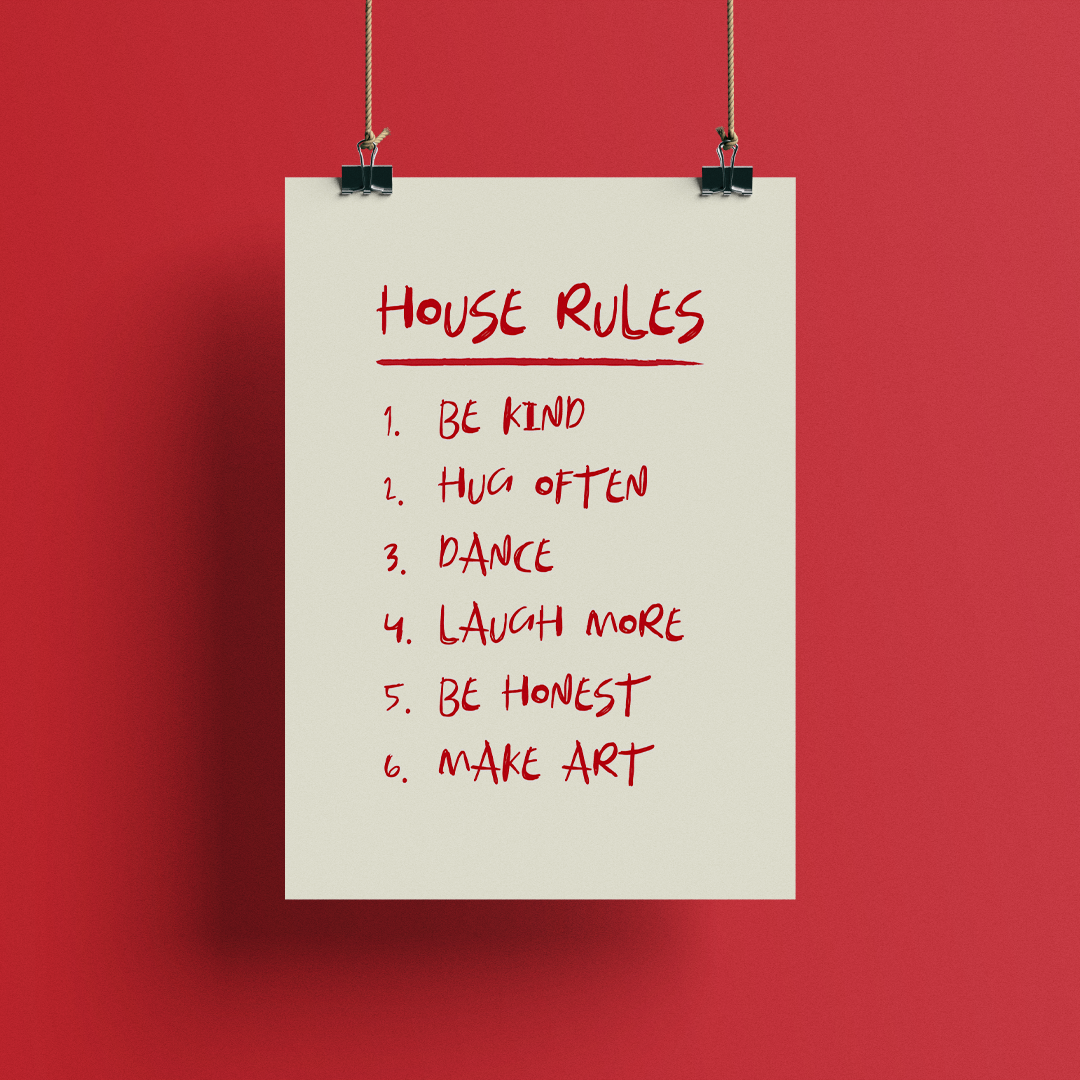 HOUSE RULES
1. BE KIND
2. HUG OFTEN
3. DANCE
4. LAUGH MORE
5. BE HONEST
6. MAKE ART